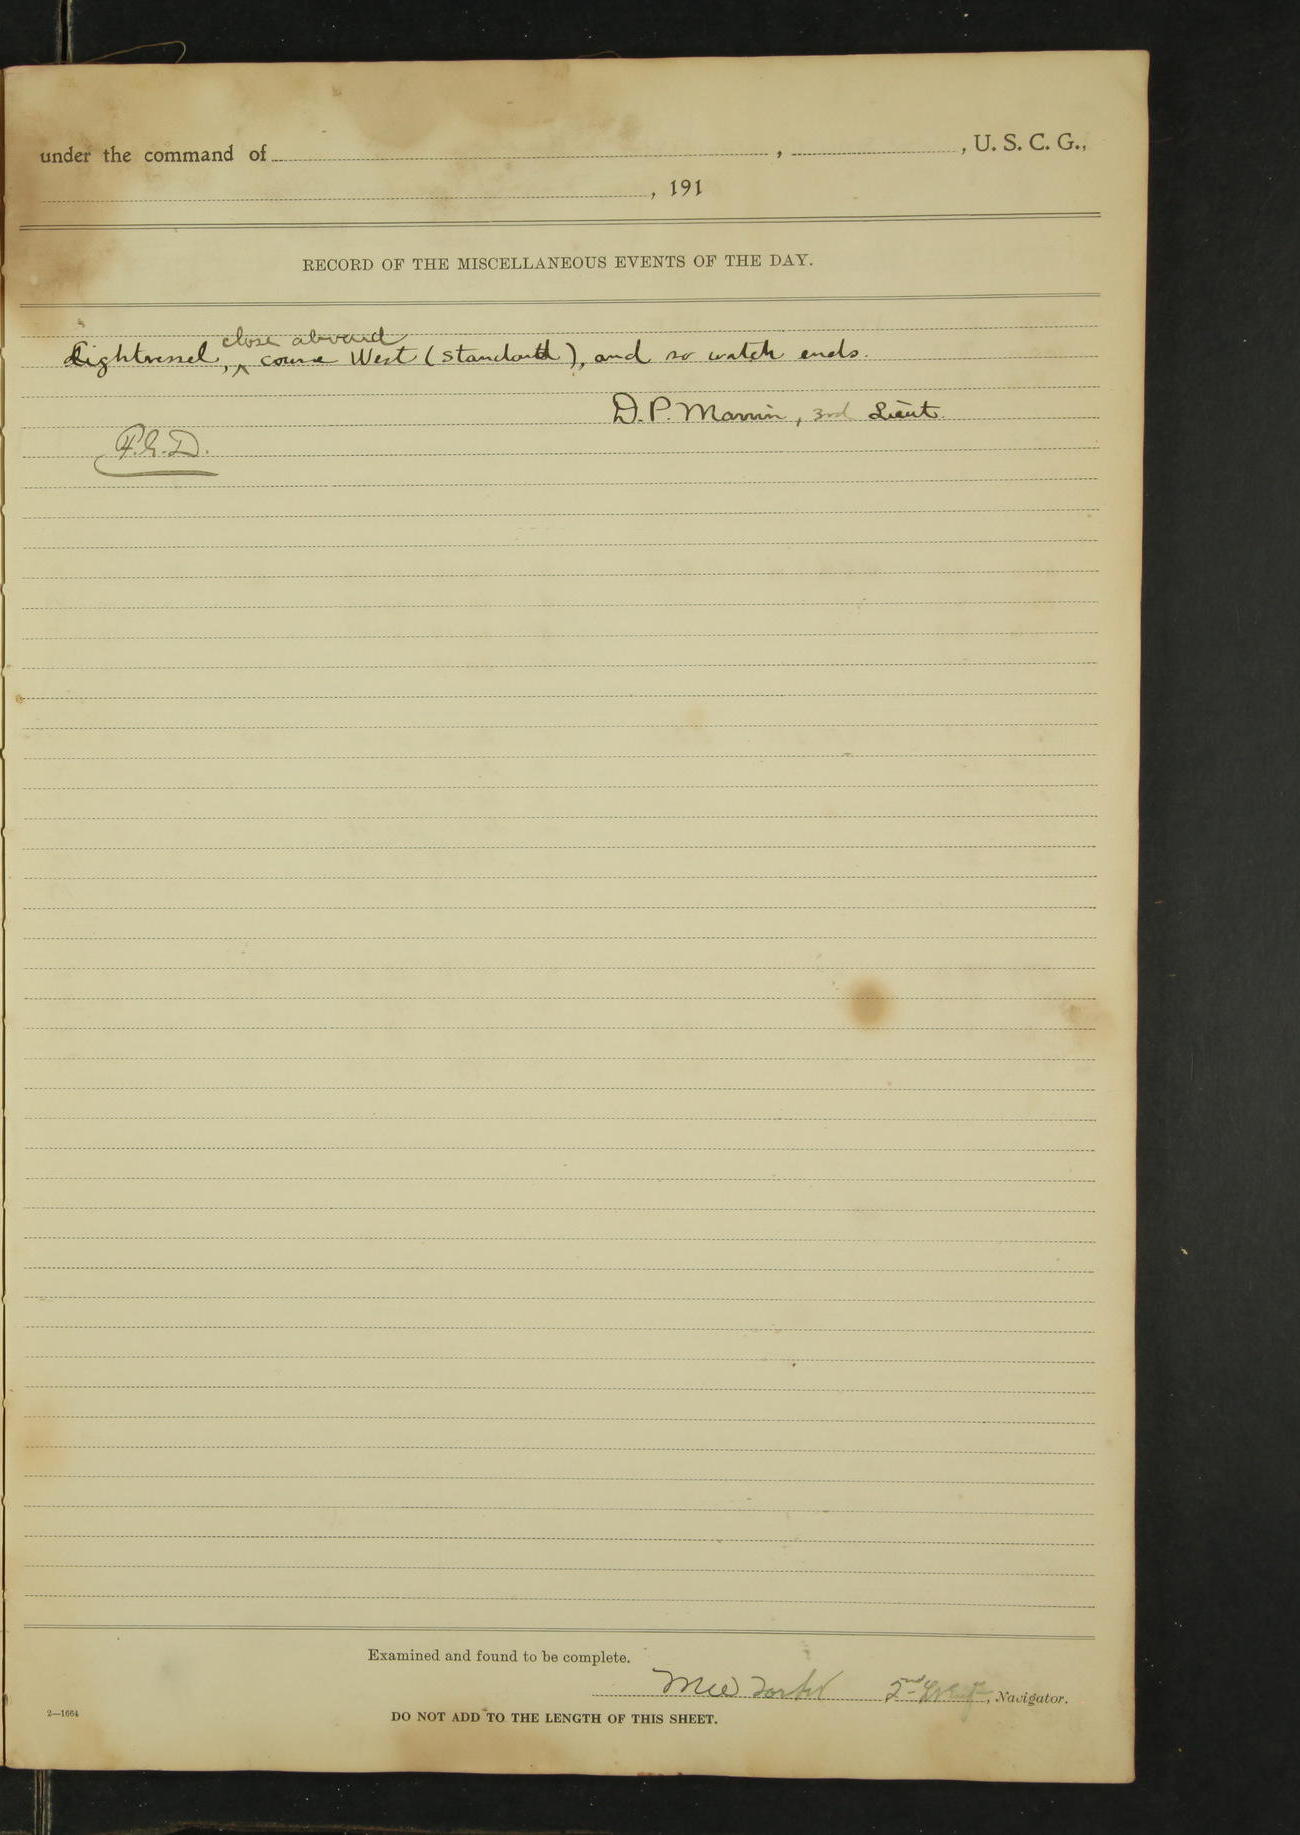 under the command of , , U. S. C. G.,
, 191
RECORD OF THE MISCELLANEOUS EVENTS OF THE DAY.
close aboard
Lightvessel, ^ course West (standard), and so watch ends.
D. P. Marvin, 3rd Lieut.
Examined and found to be complete.
2nd , Navigator.
2—1664
DO NOT ADD TO THE LENGTH OF THIS SHEET.